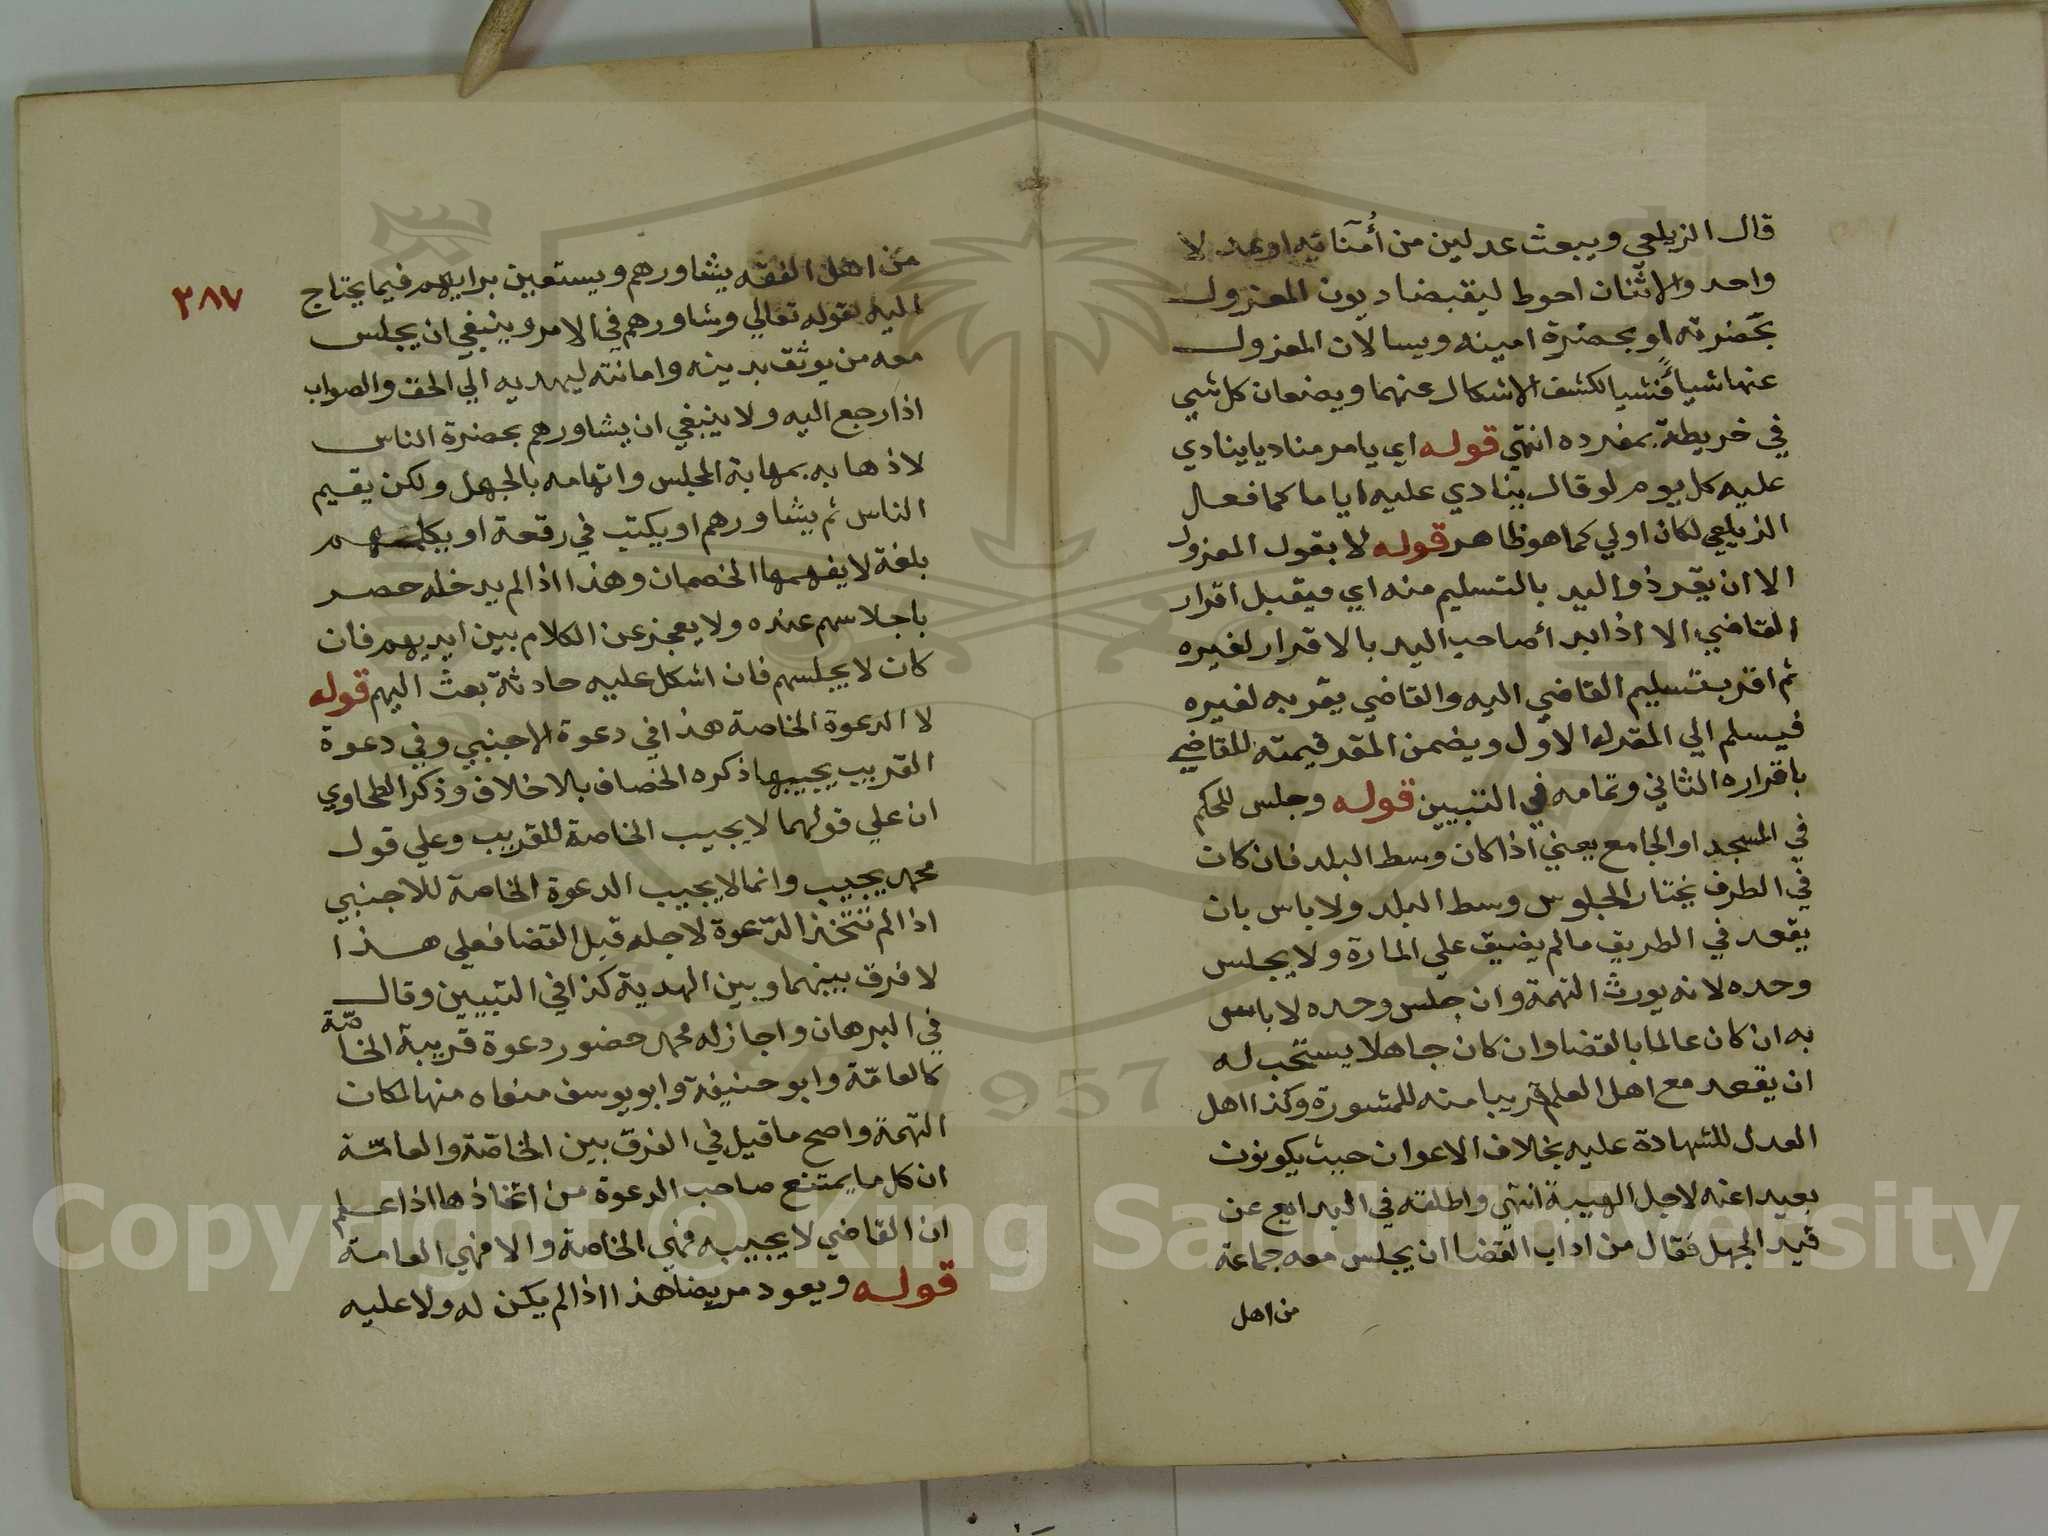 قال الزيلعي ويبعث عدلين من أمنائه او عدلا
واحد والاثنان احوط ليقبضا ديون المعزول
بحضرته او بحضرة امينه ويسالان المعزول
عنها شيا فشيا لكشف الاشكال عنهما ويضعان كل شي
في خريطة بمفرده انتهي قوله اي يامر مناديا ينادي
عليه كل يوم لو قال ينادي عليه اياما كما فعال
الزيلعي لكان اولي كما هو ظاهر قوله لا بقول المعزول
الا ان يقر ذو اليد بالتسليم منه اي فيقبل اقرار
القاضي الا اذا بدأ صاحب اليد بالاقرار لغيره
ثم اقر بتسليم القاضي اليه والقاضي يقر به لغيره
فيسلم الي المقر له الاول ويضمن المقر قيمته للقاضي
باقراره الثاني وتمامه في التبيين قوله وجلس للحكم
في المسجد او الجامع يعني اذا كان وسط البلد فان كان
في الطرف يختار الجلوس وسط البلد ولا باس بان
يقعد في الطريق مالم يضيق علي المارة ولا يجلس
وحده لانه يورث التهمة وان جلس وحده لا باس
به ان كان عالما بالقضا وان كان جاهلا يستحب له
ان يقعد مع اهل العلم قريبا منه للمشورة وكذا اهل
العدل للشهادة عليه بخلاف الاعوان حيث يكونون
بعيدا عنه لاجل الهيبة انتهي واطلقه في البدايع عن
قيد الجهل فقال من اداب القضا ان يجلس معه جماعة
من اهل
٣٨٧
من اهل الفقه يشاورهم ويستعين برايهم فيما يحتاج
اليه لقوله تعالي وشاورهم في الامر وينبغي ان يجلس
معه من يوثق بدينه وامانته ليهديه الي الحق والصواب
اذا رجع اليه ولا ينبغي ان يشاورهم بحضرة الناس
لاذهابه بمهابة المجلس واتهامه بالجهل ولكن يقيم
الناس ثم يشاورهم او يكتب في رقعة او يكلمهم
بلغة لا يفهمها الخصمان وهذا اذا لم يدخله حصر
باجلاسهم عنده ولا يعجز عن الكلام بين ايديهم فان
كان لا يجلسهم فان اشكل عليه حادثة بعث اليهم قوله
لا الدعوة الخاصة هذا في دعوة الاجنبي وفي دعوة
القريب يجيبها ذكره الخصاف بلا خلاف وذكر الطحاوي
ان علي قولهما لا يجيب الخاصة للقريب وعلي قول
محمد يجيب وانما لا يجيب الدعوة الخاصة للاجنبي
اذا لم تتخذ الدعوة لاجله قبل القضا فعلي هذا
لا فرق بينهما وبين الهدية كذا في التبيين وقال
في البرهان واجاز له محمد حضور دعوة قريبة الخاصة
كالعامة وابو حنيفة وابو يوسف منعاه منها لمكان
التهمة واصح ما قيل في الفرق بين الخاصة والعامة
ان كل ما يمتنع صاحب الدعوة من اتخاذها اذا علم
ان القاضي لا يجيبه فهي الخاصة والا فهي العامة
قوله ويعود مريضا هذا اذا لم يكن له ولا عليه
1957
Copyright © King Saud University